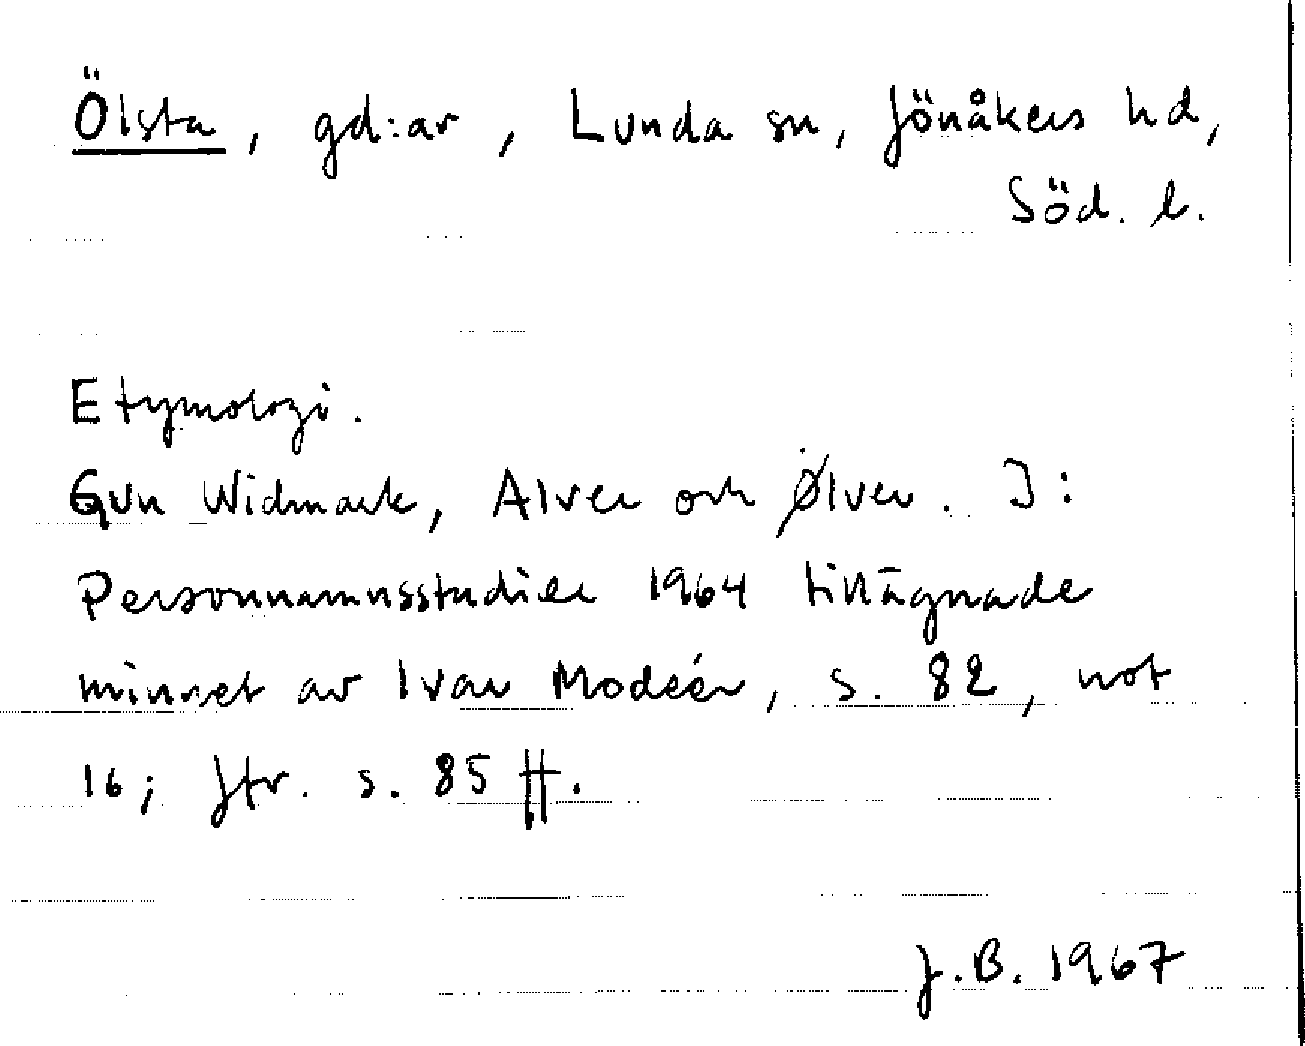 Ölsta, gd:ar, Lunda sn, Jönåkers hd,
Söd. l.
Etymologi.
Gun Widmark, Alver och Ølver. I:
Personnamnsstudier 1964 tillägnade
minnet av Ivar Modéer, s. 82, not
16; jfr. s. 85 ff.
J.B. 1967